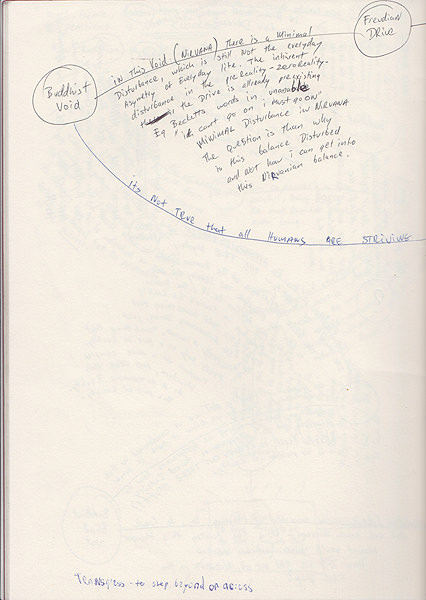 Buddhist
Void
Freudian
Drive
in this Void (NIRVANA) There is a Minimal
Disturbance, which is still Not the everyday
Asymetry of Everyday like. The inherent
disturbance in the prereality - zeroreality -
is the Drive is allready preexisting
Eg Becketts words in unnamable
"i cant go on i must go on"
MiNiMAL Disturbance iN NIRVANA
The Question is then why
is this balance Disturbed
and not how i can get into
this NiRvanian balance.
its Not True that all HUMANS ARE STRIVING
TRANSGRESS - to step beyond or across